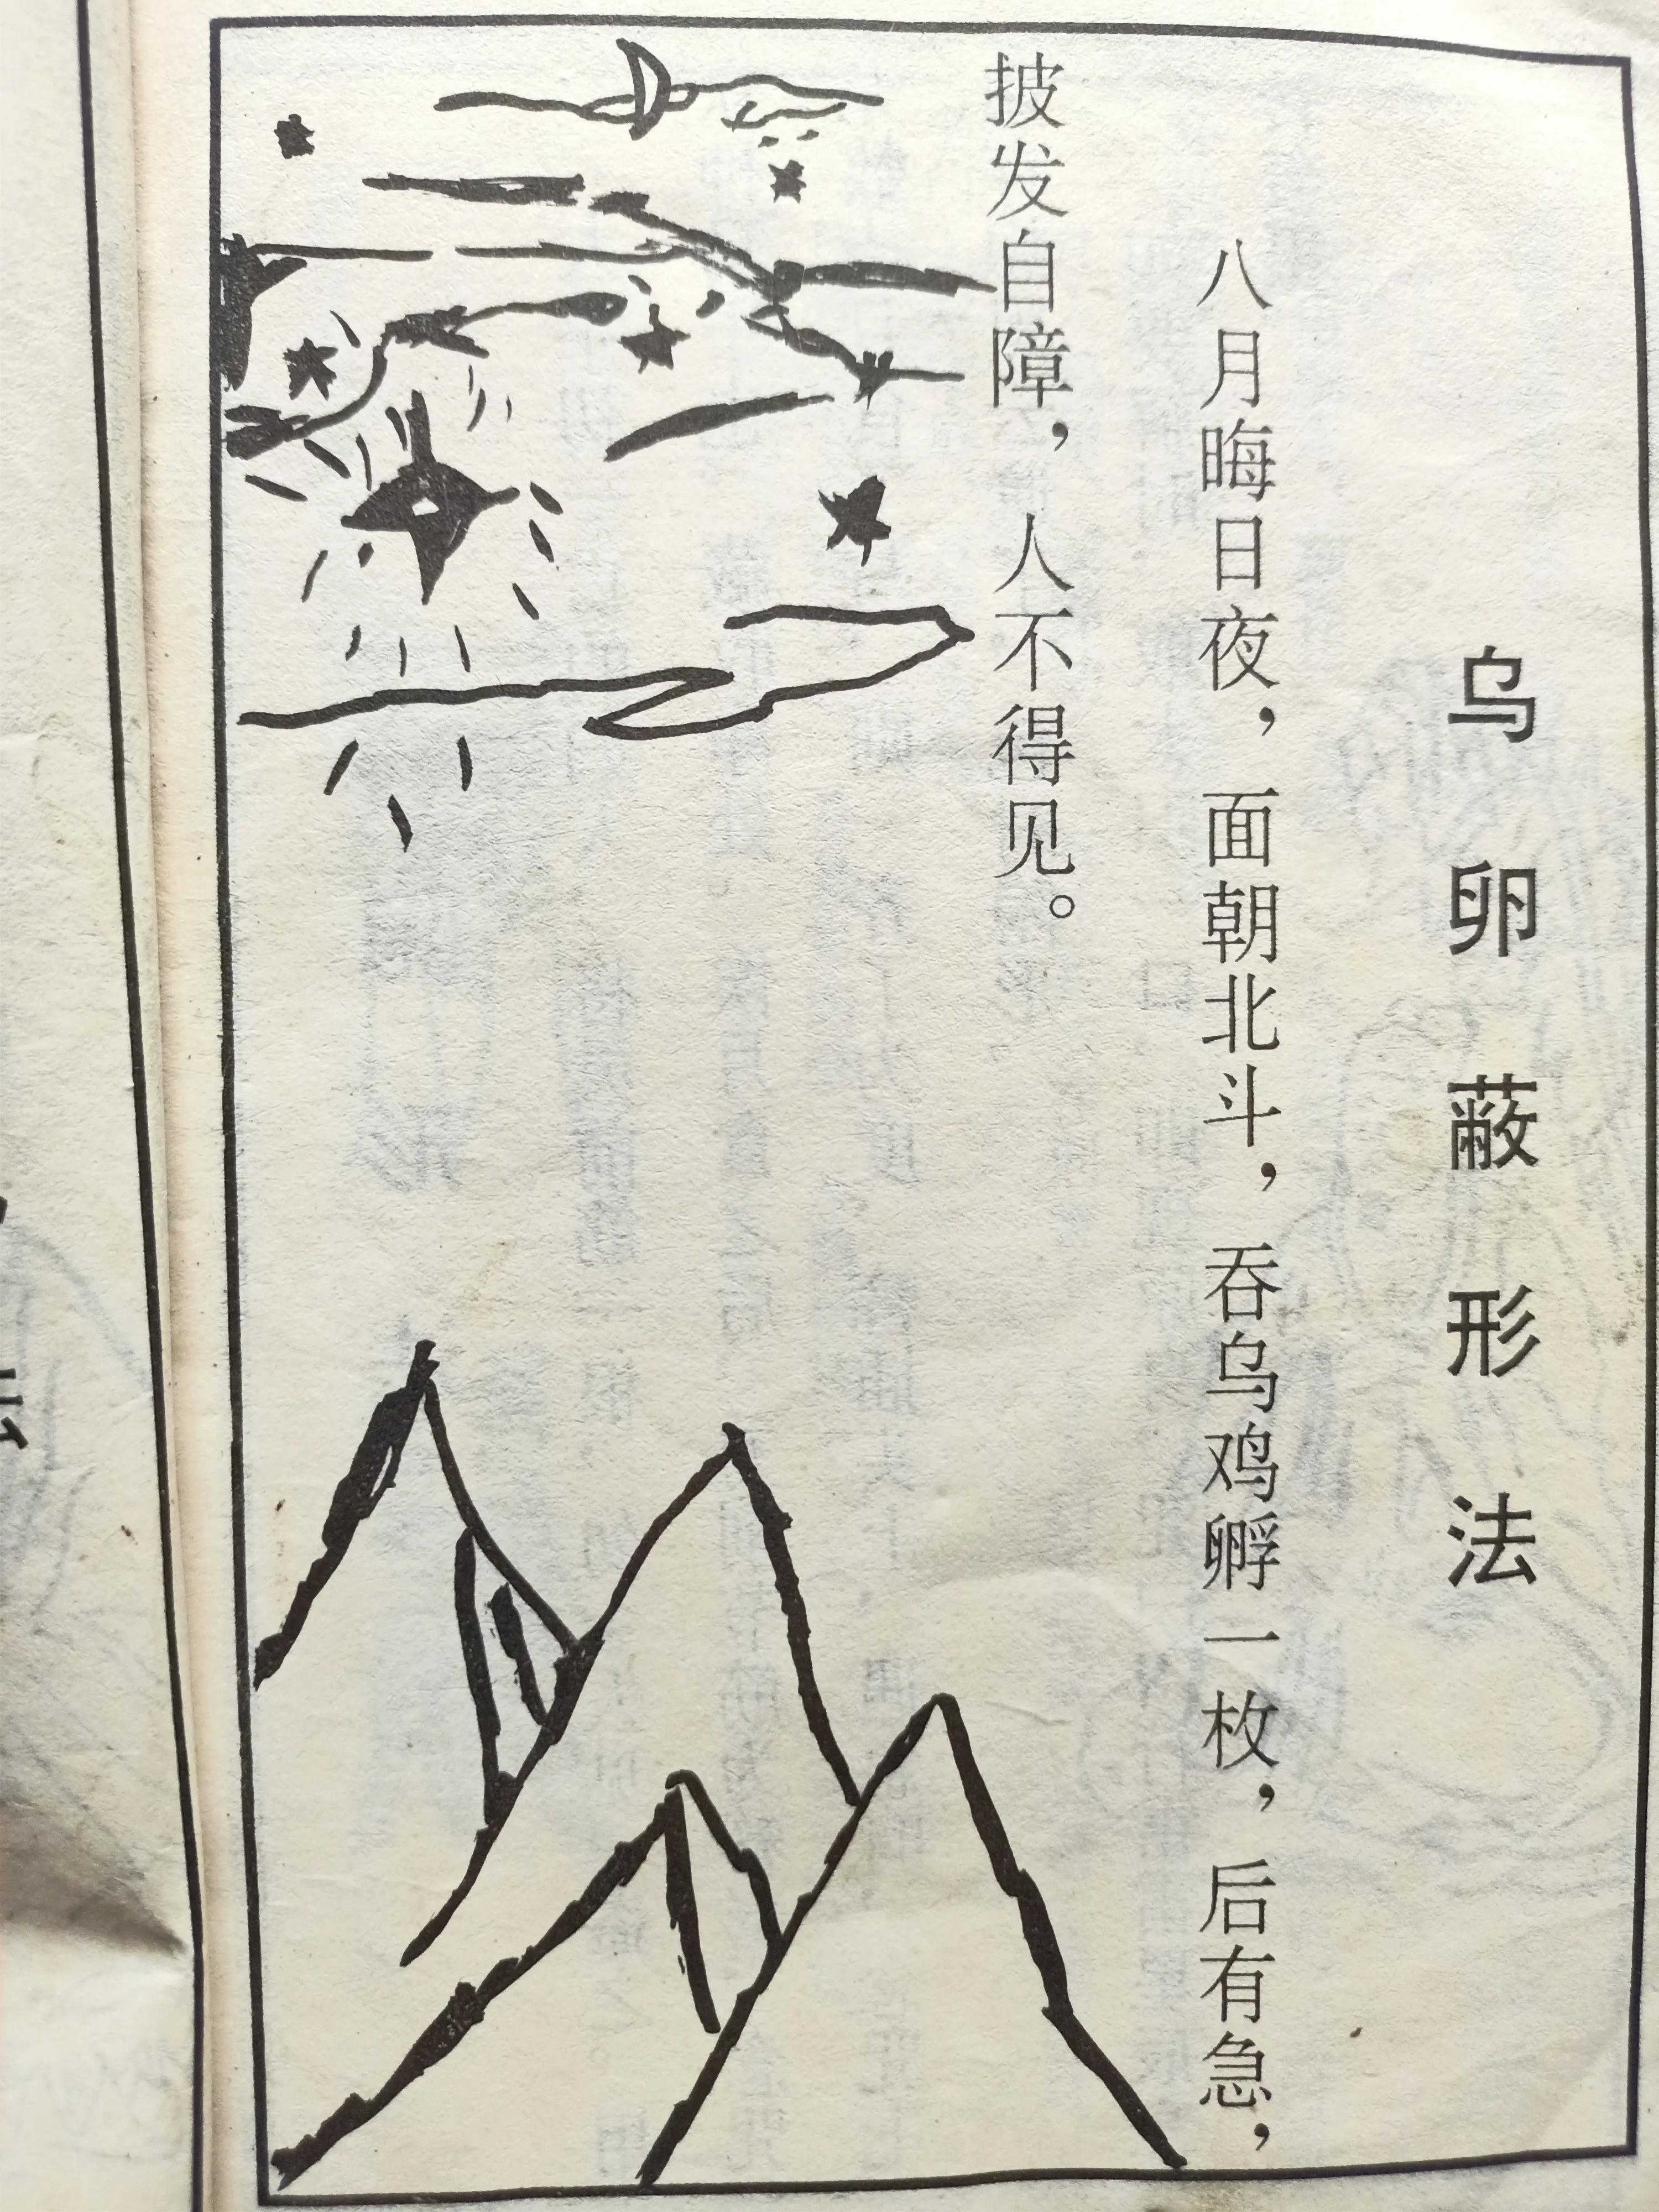 乌卵蔽形法
八月晦日夜，面朝北斗，吞乌鸡孵一枚，后有急，
披发自障，人不得见。